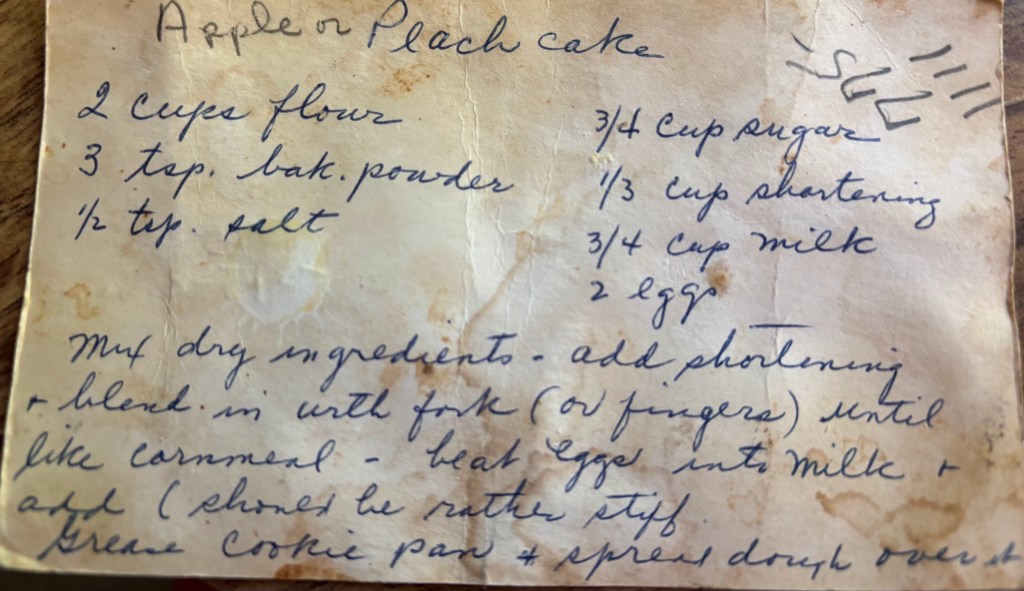 Apple or Peach cake
2 cups flour
3 tsp. bak. powder
1/2 tsp. salt
3/4 cup sugar
1/3 cup shortening
3/4 cup milk
2 eggs
Mix dry ingredients - add shortening
+ blend in with fork (or fingers) until
like cornmeal - beat Eggs into milk +
add (should be rather stiff
Grease cookie pan + spread dough over it